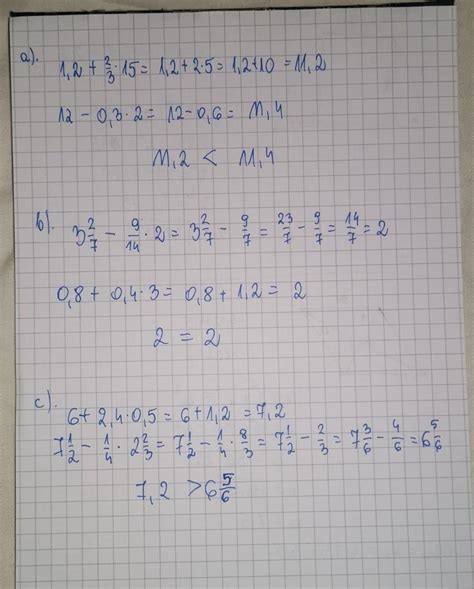 a).
1,2 + 2/3 · 15 = 1,2 + 2·5 = 1,2 + 10 = 11,2
12 - 0,3 · 2 = 12 - 0,6 = 11,4
11,2 < 11,4
b).
3 2/7 - 9/14 · 2 = 3 2/7 - 9/7 = 23/7 - 9/7 = 14/7 = 2
0,8 + 0,4 · 3 = 0,8 + 1,2 = 2
2 = 2
c).
6 + 2,4 · 0,5 = 6 + 1,2 = 7,2
7 1/2 - 1/4 · 2 2/3 = 7 1/2 - 1/4 · 8/3 = 7 1/2 - 2/3 = 7 3/6 - 4/6 = 6 5/6
7,2 > 6 5/6